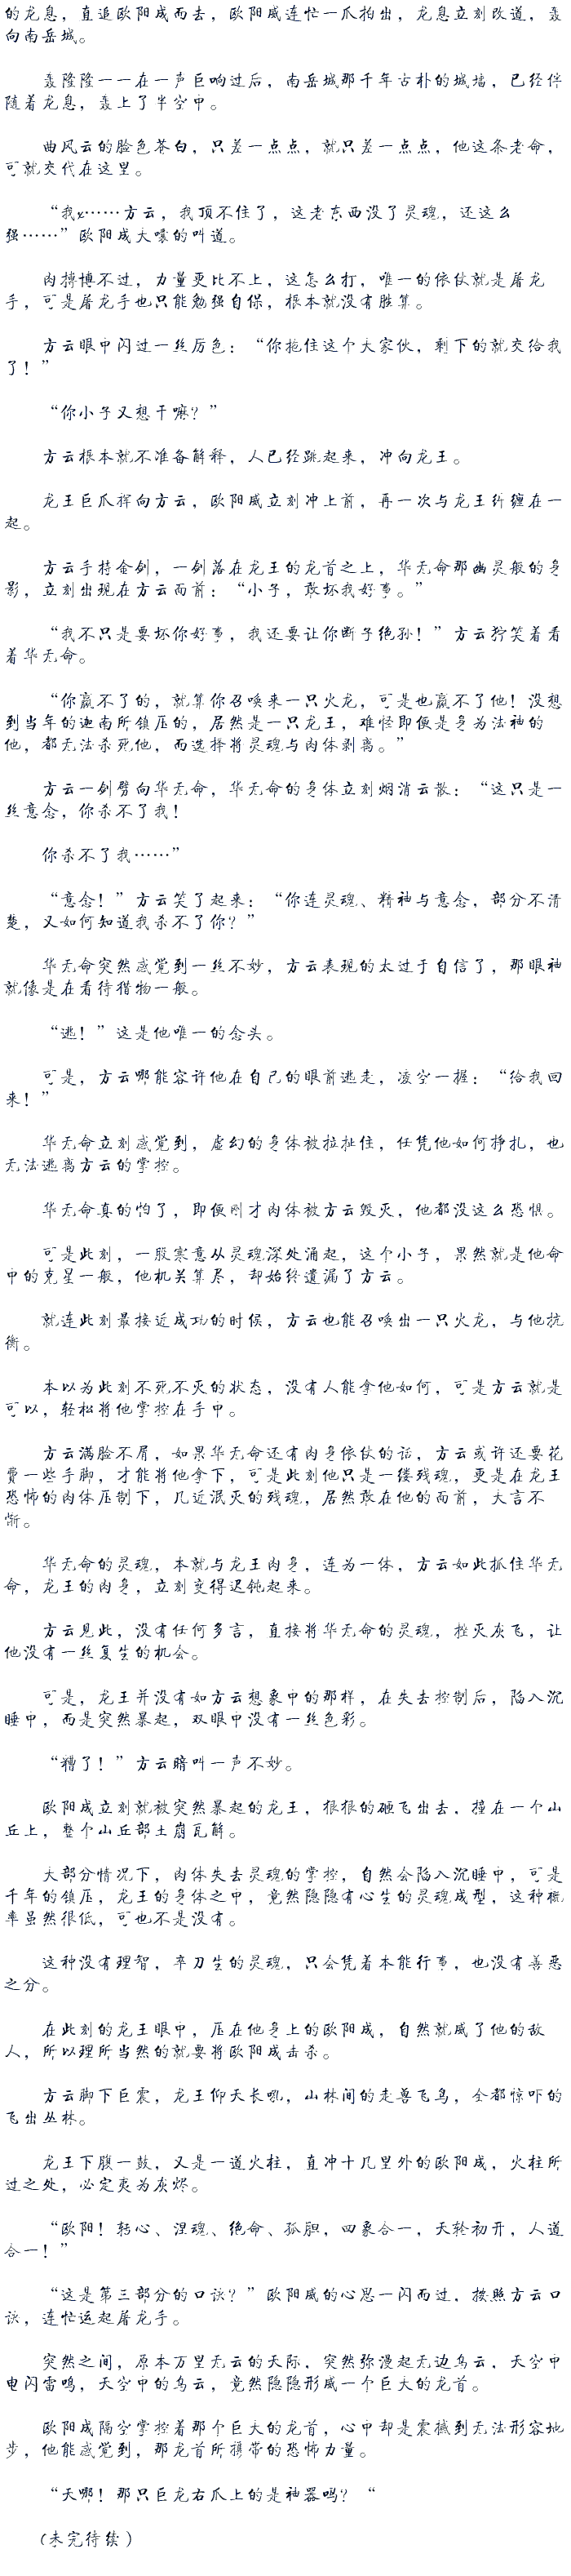 的龙息，直追欧阳成而去，欧阳成连忙一爪拍出，龙息立刻改道，轰
向南岳城。
轰隆隆一一在一声巨响过后，南岳城那千年古朴的城墙，已经伴
随着龙息，轰上了半空中。
曲风云的脸色苍白，只差一点点，就只差一点点，他这条老命，
可就交代在这里。
“我x……方云，我顶不住了，这老东西没了灵魂，还这么
强……”欧阳成大嚷的叫道。
肉搏博不过，力量更比不上，这怎么打，唯一的依仗就是屠龙
手，可是屠龙手也只能勉强自保，根本就没有胜算。
方云眼中闪过一丝厉色：“你拖住这个大家伙，剩下的就交给我
了！”
“你小子又想干嘛？”
方云根本就不准备解释，人已经跳起来，冲向龙王。
龙王巨爪挥向方云，欧阳成立刻冲上前，再一次与龙王纠缠在一
起。
方云手持金剑，一剑落在龙王的龙首之上，华无命那幽灵般的身
影，立刻出现在方云面前：“小子，敢坏我好事。”
“我不只是要坏你好事，我还要让你断子绝孙！”方云狞笑着看
着华无命。
“你赢不了的，就算你召唤来一只火龙，可是也赢不了他！没想
到当年的迦南所镇压的，居然是一只龙王，难怪即便是身为法神的
他，都无法杀死他，而选择将灵魂与肉体剥离。”
方云一剑劈向华无命，华无命的身体立刻烟消云散：“这只是一
丝意念，你杀不了我！
你杀不了我……”
“意念！”方云笑了起来：“你连灵魂、精神与意念，都分不清
楚，又如何知道我杀不了你？”
华无命突然感觉到一丝不妙，方云表现的太过于自信了，那眼神
就像是在看待猎物一般。
“逃！”这是他唯一的念头。
可是，方云哪能容许他在自己的眼前逃走，凌空一握：“给我回
来！”
华无命立刻感觉到，虚幻的身体被拉扯住，任凭他如何挣扎，也
无法逃离方云的掌控。
华无命真的怕了，即便刚才肉体被方云毁灭，他都没这么恐惧。
可是此刻，一股寒意从灵魂深处涌起，这个小子，果然就是他命
中的克星一般，他机关算尽，却始终遗漏了方云。
就连此刻最接近成功的时候，方云也能召唤出一只火龙，与他抗
衡。
本以为此刻不死不灭的状态，没有人能拿他如何，可是方云就是
可以，轻松将他掌控在手中。
方云满脸不屑，如果华无命还有肉身依仗的话，方云或许还要花
费一些手脚，才能将他拿下，可是此刻他只是一缕残魂，更是在龙王
恐怖的肉体压制下，几近泯灭的残魂，居然敢在他的面前，大言不
惭。
华无命的灵魂，本就与龙王肉身，连为一体，方云如此抓住华无
命，龙王的肉身，立刻变得迟钝起来。
方云见此，没有任何多言，直接将华无命的灵魂，捏灭灰飞，让
他没有一丝复生的机会。
可是，龙王并没有如方云想象中的那样，在失去控制后，陷入沉
睡中，而是突然暴起，双眼中没有一丝色彩。
“糟了！”方云暗叫一声不妙。
欧阳成立刻就被突然暴起的龙王，狠狠的砸飞出去，撞在一个山
丘上，整个山丘都土崩瓦解。
大部分情况下，肉体失去灵魂的掌控，自然会陷入沉睡中，可是
千年的镇压，龙王的身体之中，竟然隐隐有心生的灵魂成型，这种概
率虽然很低，可也不是没有。
这种没有理智，卒刀生的灵魂，只会凭着本能行事，也没有善恶
之分。
在此刻的龙王眼中，压在他身上的欧阳成，自然就成了他的敌
人，所以理所当然的就要将欧阳成击杀。
方云脚下巨震，龙王仰天长吼，山林间的走兽飞鸟，全都惊吓的
飞出丛林。
龙王下腹一鼓，又是一道火柱，直冲十几里外的欧阳成，火柱所
过之处，必定夷为灰烬。
“欧阳！转心、涅魂、绝命、孤胆，四象合一，天轮初开，人道
合一！”
“这是第三部分的口诀？”欧阳成的心思一闪而过，按照方云口
诀，连忙运起屠龙手。
突然之间，原本万里无云的天际，突然弥漫起无边乌云，天空中
电闪雷鸣，天空中的乌云，竟然隐隐形成一个巨大的龙首。
欧阳成隔空掌控着那个巨大的龙首，心中却是震撼到无法形容地
步，他能感觉到，那龙首所携带的恐怖力量。
“天哪！那只巨龙右爪上的是神器吗？“
（未完待续）